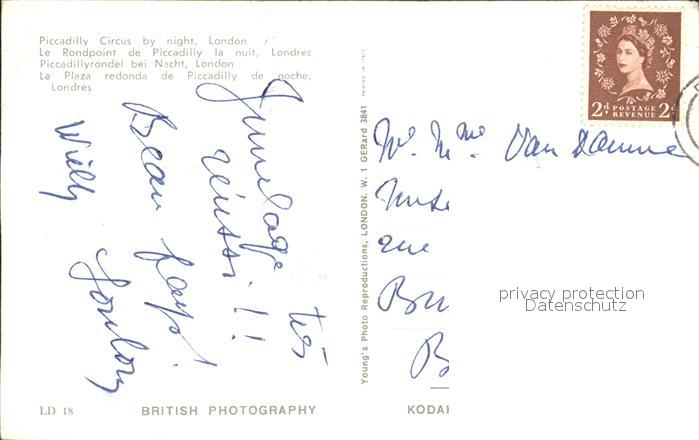 Piccadilly Circus by night, London
Le Rondpoint de Piccadilly la nuit, Londres
Piccadillyrondel bei Nacht, London
La Plaza redonda de Piccadilly de noche,
Londres
Jumelage très
réussi!!
Beau pays!
London
Willy
Young's Photo Reproductions, LONDON. W. 1 GERard 3841 PRINTED IN ITALY
2d POSTAGE 2d
REVENUE
Mr. Mme. Van Damme
rue
privacy protection
Datenschutz
LD 18 BRITISH PHOTOGRAPHY KODAK